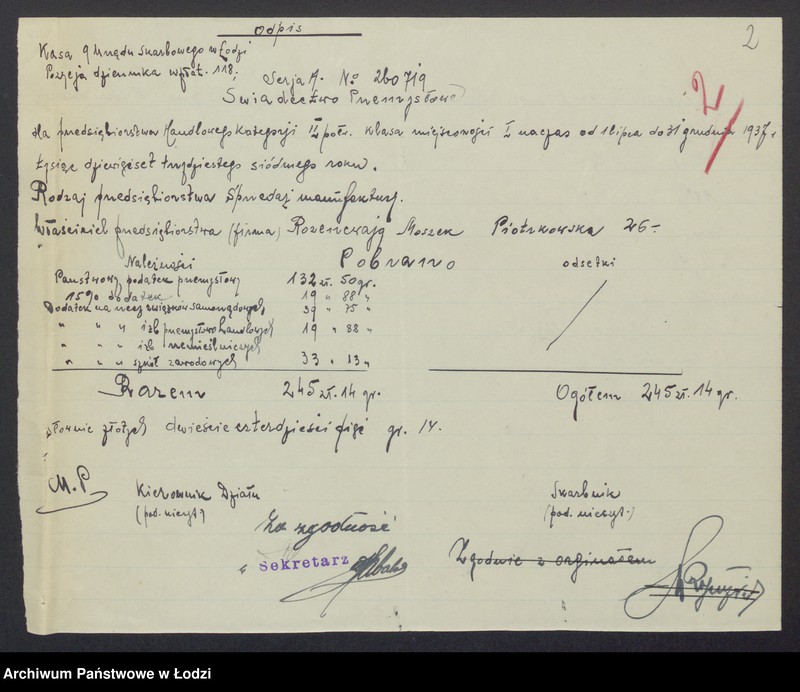 Odpis
2
Kasa 9 Urzędu Skarbowego w Łodzi
Pozycja dziennika wpłat. 118;
Serja A. No 260719
2
Świadectwo Przemysłowe
dla przedsiębiorstwa Handlowego kategorji II połr. klasa miejscowości I na czas od 1 lipca do 31 grudnia 1937 r
tysiąc dziewięćset trzydziestego siódmego roku.
Rodzaj przedsiębiorstwa Sprzedaż manufaktury.
Właściciel przedsiębiorstwa (firma) Rozencwajg Moszek Piotrkowska 26-
Należności Pobrano odsetki
Państwowy podatek przemysłowy 132 zł. 50 gr.
15% dodatek 19 " 88 "
Dodatek na rzecz związków samorządowych 39 " 75 "
" " " izb przemysłowo handlowych 19 " 88 "
" " " izb rzemieślniczych
" " " szkół zawodowych 33 " 13 "
Razem 245 zł. 14 gr. Ogółem 245 zł. 14 gr.
słownie złotych dwieście czterdzieści pięć gr. 14.
M.P. Kierownik Działu Skarbnik
(pod. nieczyt.) (pod. nieczyt.)
Za zgodność
Sekretarz
Zgodnie z orginałem
Archiwum Państwowe w Łodzi